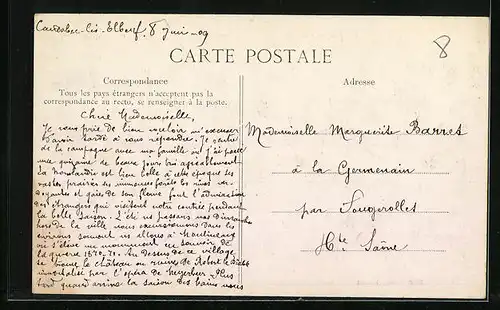 Caudebec-lès-Elbeuf, 8 Juin-09
8
CARTE POSTALE
Correspondance
Tous les pays étrangers n'acceptent pas la
correspondance au recto, se renseigner à la poste.
Adresse
Chère Mademoiselle,
Je vous prie de bien vouloir m'excuser
d'avoir tardé à vous répondre. Je rentre
de la campagne avec ma famille où j'ai passé
une quinzaine de beaux jours
La Normandie est bien belle à cette époque ses
vastes prairies ses immenses forêts
et gaies de son fleuve font l'admiration
des étrangers qui visitent notre contrée pendant
la belle saison. L'été ns passons nos Dimanches
hors de la ville nous excursionnons dans les
environs souvent ns allons à Moulineaux
où s'élève un monument en souvenir de
la guerre 1870-71. Au dessus de ce village
se trouve le château en ruines de Robert le Diable
immortalisé par l'opéra de Meyerbeer. Plus
tard quand arrive la saison des bains nous
Mademoiselle Marguerite Barret
à la Germenain
par Fougerolles
Hte Saône